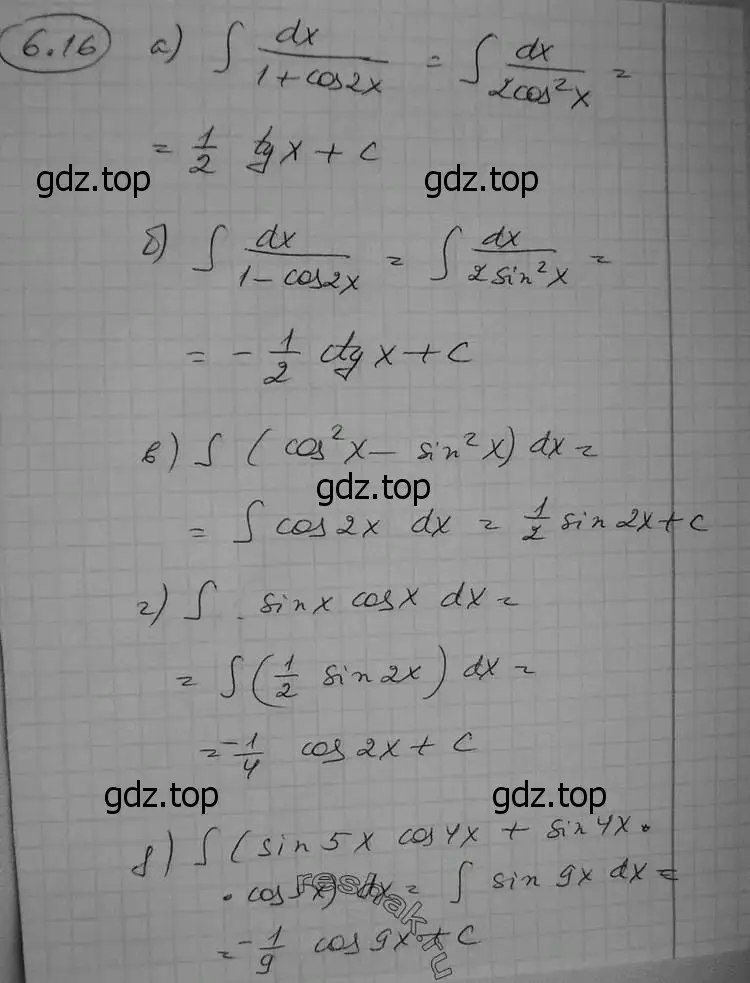 6.16 а) ∫ dx/(1+cos2x) = ∫ dx/(2cos²x) =
= 1/2 tgx + c
gdz.top gdz.top
б) ∫ dx/(1-cos2x) = ∫ dx/(2sin²x) =
= -1/2 ctgx + c
в) ∫ (cos²x - sin²x) dx =
gdz.top
= ∫ cos2x dx = 1/2 sin2x + c
г) ∫ sinx cosx dx =
= ∫ (1/2 sin2x) dx =
= -1/4 cos2x + c
gdz.top gdz.top
д) ∫ (sin5x cos4x + sin4x ·
· cos5x) dx = ∫ sin9x dx =
reshak.ru
= -1/9 cos9x + c